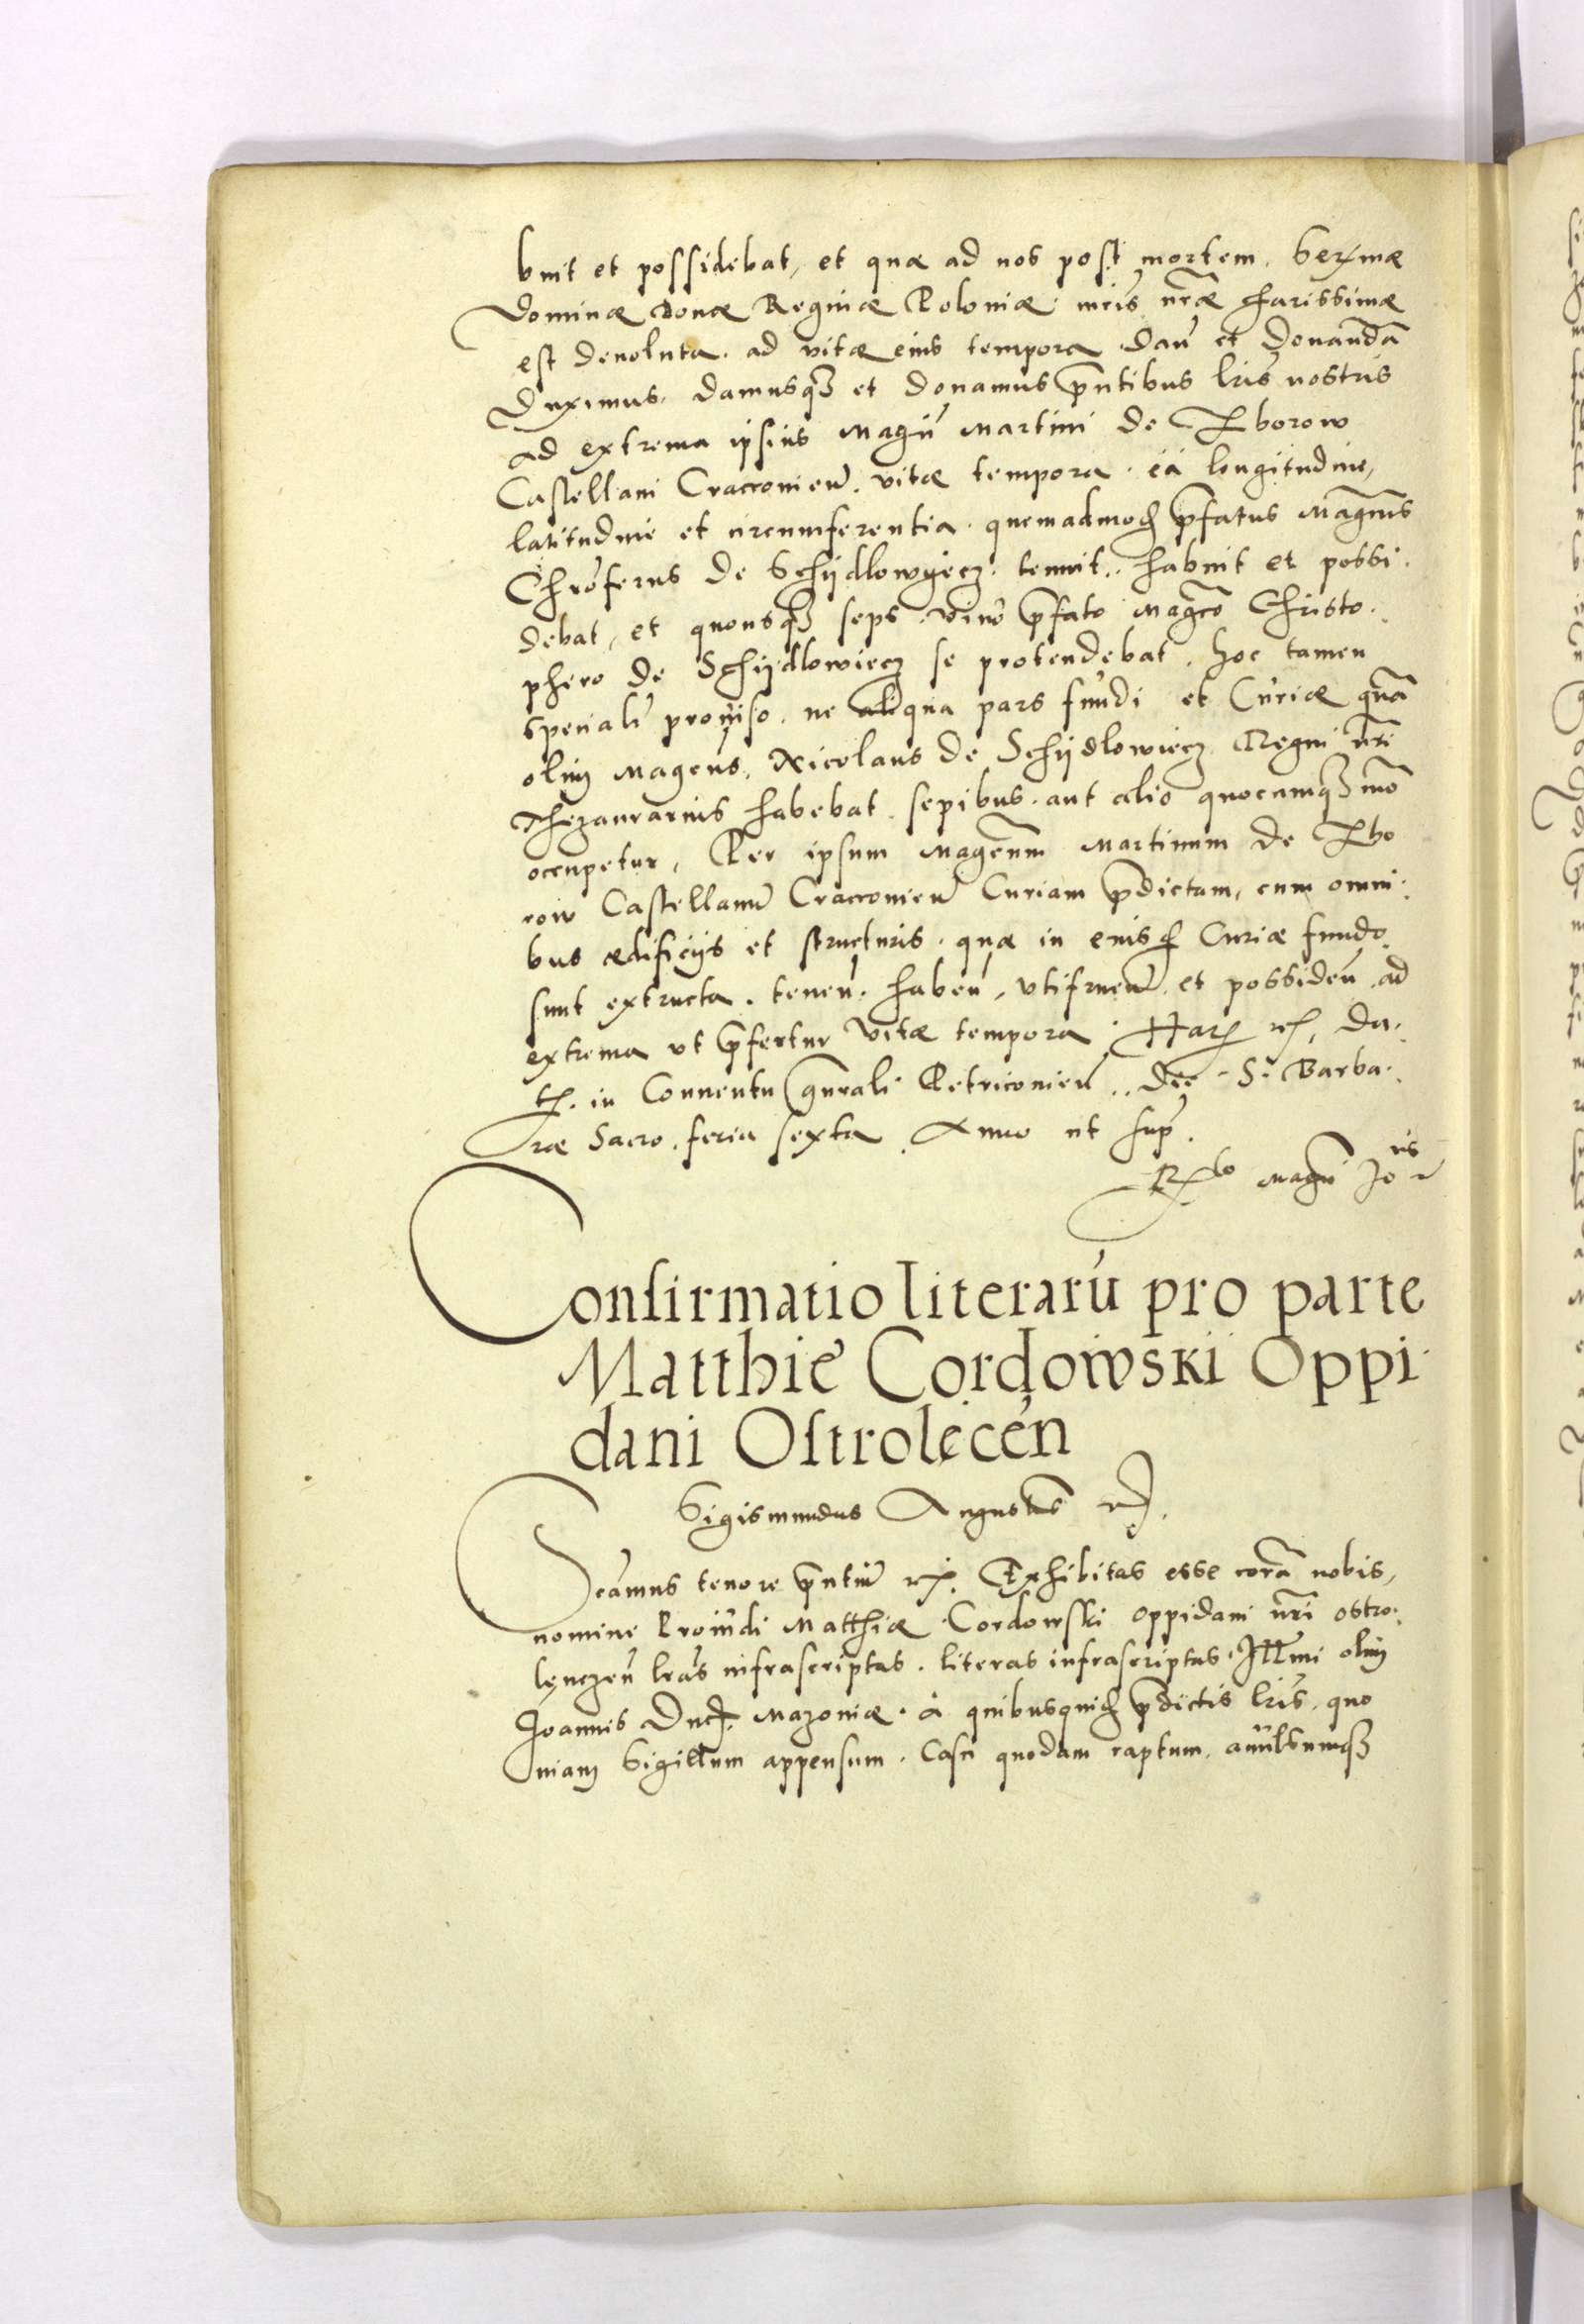 buit et possidebat, et quæ ad nos post mortem. Serxmæ
Dominæ Bonæ Reginæ Poloniæ. mr̃is nr̃æ charissimæ
est deuoluta. ad vitæ eius tempora dañ et donandã
Duximus. damusqꝫ et donamus p̃ntibus lr̃is nostris
ad extrema ipsius Magñ Martini de Zborow
Castellani Cracouieñ. vitæ tempora. eá longitudine,
latitudine et circumferentia. quemadmođ p̃fatus Mag̃cus
Chrõferus de Schÿdlowyecz. tenuit. habuit et possi.
debat, et quousqꝫ seps. viuo p̃fato mag̃co Christo.
phero de Schÿdlowiecz se protendebat. hoc tamen
speciali prouiso. ne aliqua pars fundi et Curiæ quã
olim Mag̃cus, Nicolaus de Schÿdlowiecz Regni nr̃i
Thezaurarius habebat. sepibus. aut alio quocumqꝫ mõ
occupetur, Per ipsum Mag̃cum Martinum de Zbo
row Castellanũ Cracouieñ Curiam p̃dictam, cum omni.
bus ædificijs et structuris. quæ in eiusđ Curiæ fundo
sunt extructa. teneñ. habeñ, vtifrueñ. et possideñ. ad
extrema vt p̃fertur vitæ tempora. Harꝝ rꝭ, Da.
tꝭ. in Conuentu gñrali Petricouieñ.. die. S. Barba.
ræ Sacro. feria sexta. Anno ut sup̃.
Rꝭo Magñi Jo is
Confirmatio literarũ pro parte
Matthie Cordowski Oppi.
dani Ostrolęceń
Sigismundus Augustus rꝭ.
Scamus tenore p̃ntiũ rꝭ. Exhibitas esse corã nobis,
nomine Prouidi Matthiæ Cordowski oppidani nr̃i ostro.
lęnczeñ lr̃as infrascriptas. literas infrascriptas. Illmi olim
Joannis Ducꝭ. Mazouiæ. à quibusquiđ p̃dictis lr̃is, quo
niam Sigillum appensum. Casu quodam raptum. auulsumqꝫ